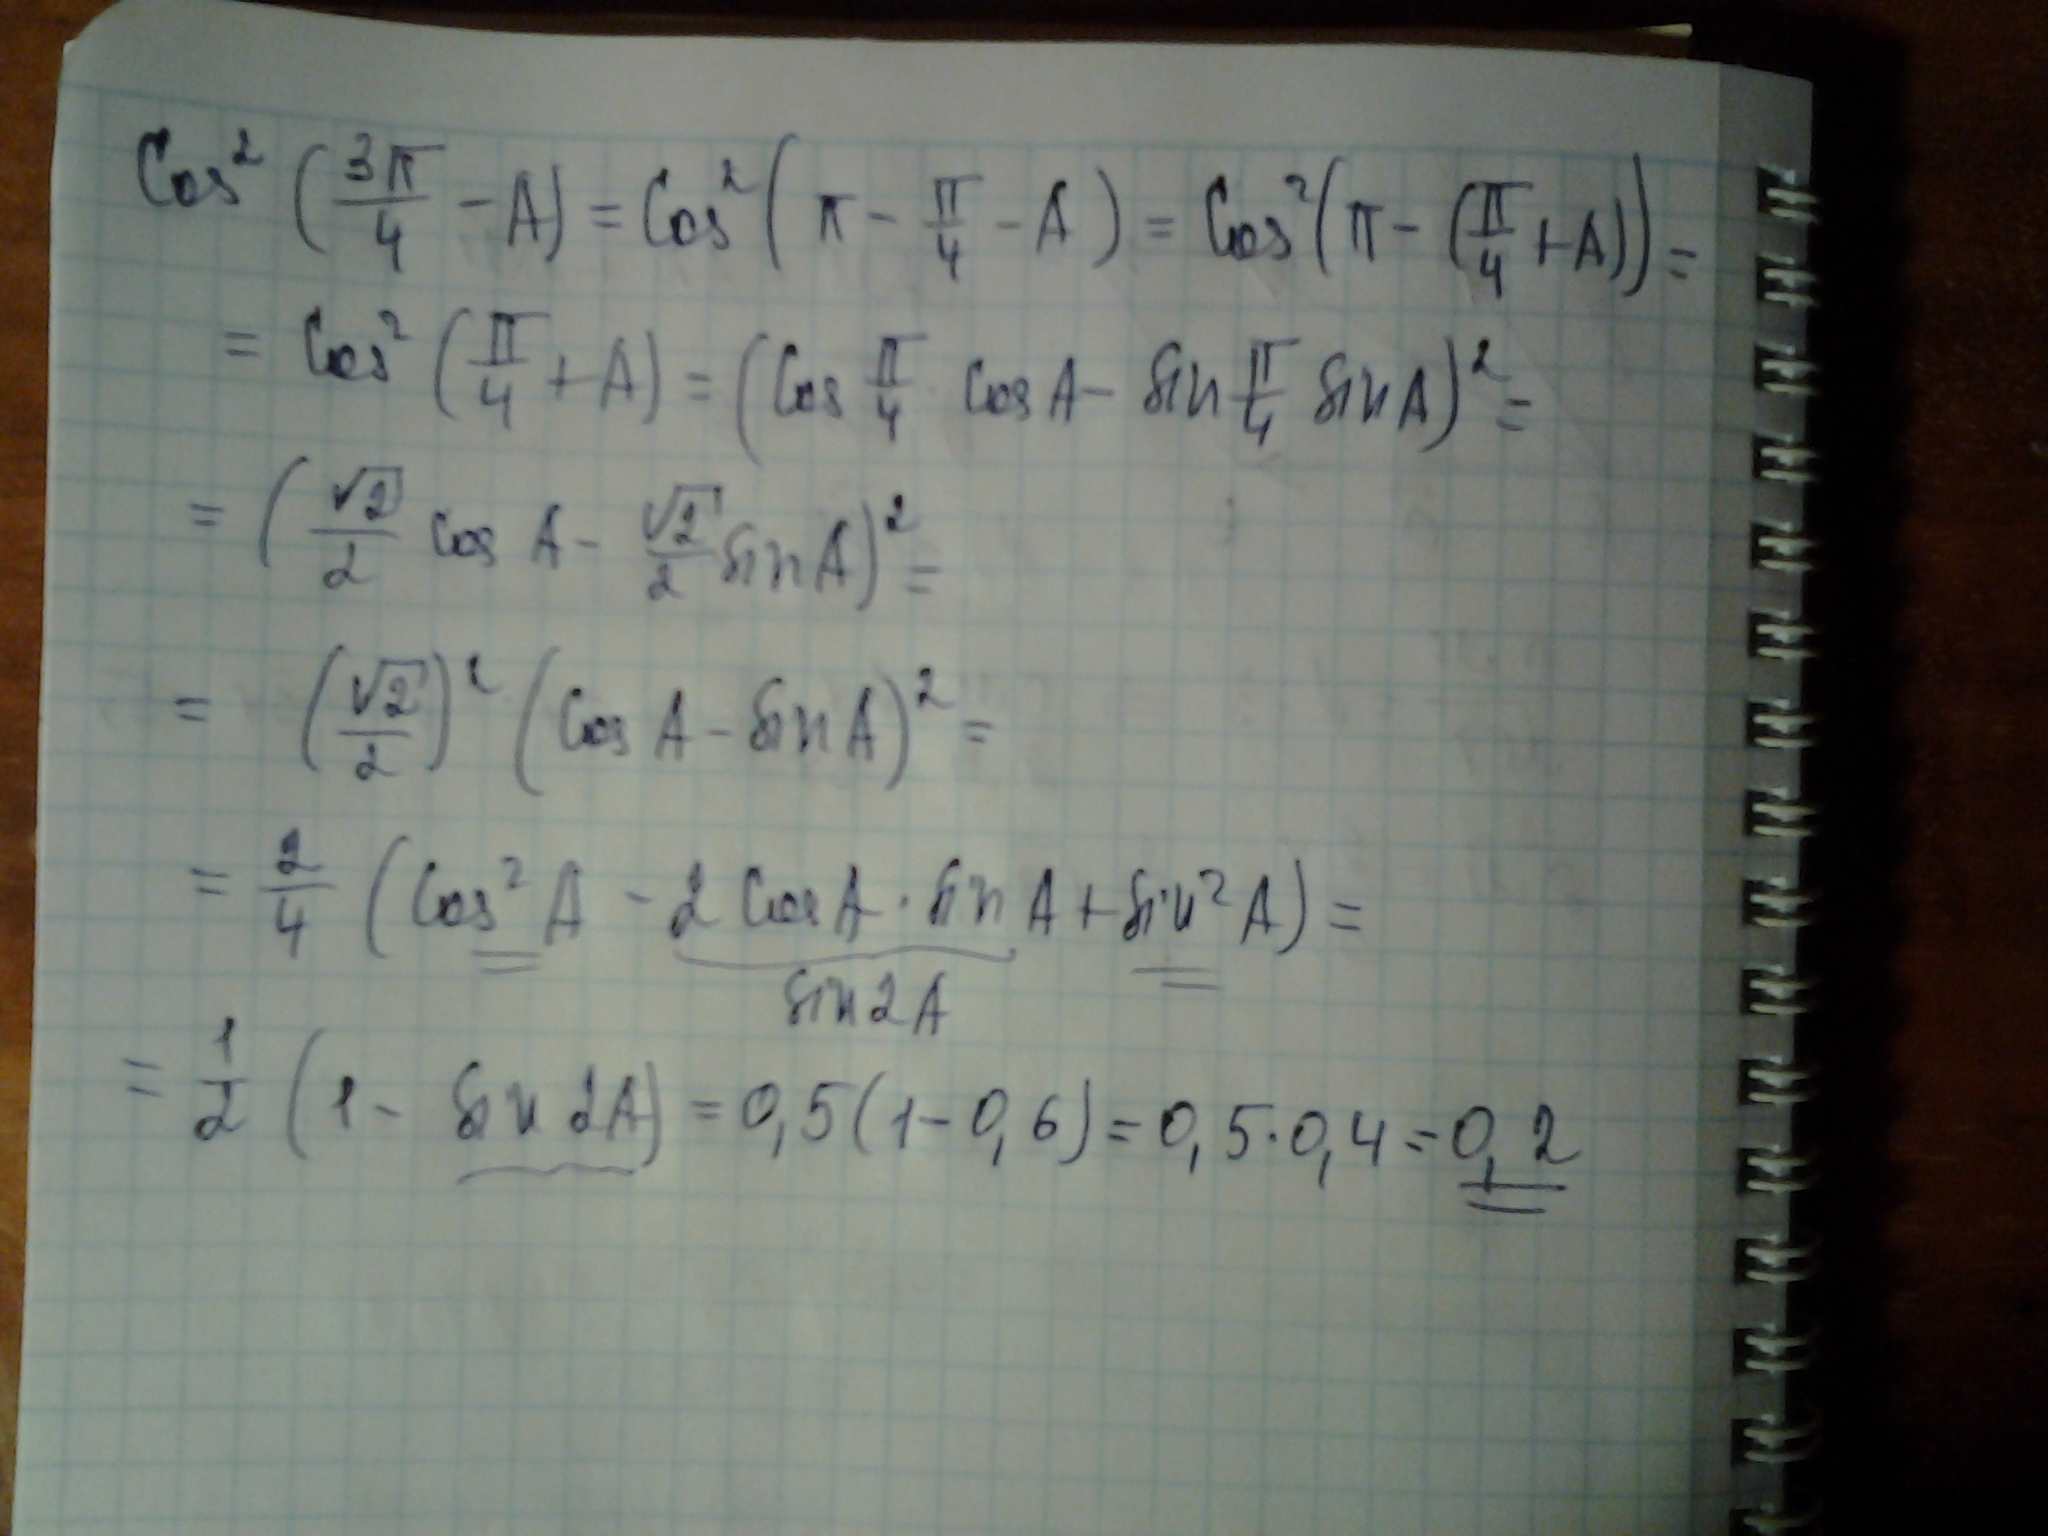 Cos² (3π/4 - A) = Cos² (π - π/4 - A) = Cos² (π - (π/4 + A)) =
= Cos² (π/4 + A) = (Cos π/4 · Cos A - sin π/4 sin A)² =
= (√2/2 Cos A - √2/2 sin A)² =
= (√2/2)² (Cos A - sin A)² =
= 2/4 (Cos² A - 2 Cos A · sin A + sin² A) =
sin 2A
= 1/2 (1 - sin 2A) = 0,5 (1 - 0,6) = 0,5 · 0,4 = 0,2